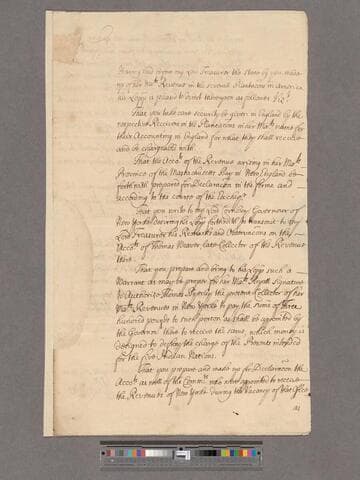 Having laid before my Lord Treasurer the State by you made
up of her Ma:ts Revenue in the several Plantacons in America
his Lopp is pleased to direct thereupon as followeth Viz:t
That you take care security be given in England by the
respective Receivers in the Plantacons in her Ma:ts to
their Accounting in England for what they shall receive
and be chargeable with.
That the Acco:ts of the Revenue arising in her Ma:ts
Province of the Massachusets Bay in New England be
forthwith prepared for Declaracon in the forme and
according to the course of the Excheq:r
That you write to my Lord Cornbury Governour of
New York desiring his Lopp to transmit to my
Lord Treasurer his Remarks and Observacons on the
Acco:ts of Thomas Weaver late Collector of the Revenue
there.
That you prepare and bring to his Lopp such a
Warrant as may be proper for her Ma:ts Royall Signature
to Authorize Thomas Byerley the present Collector of her
Ma:ts Revenues in New Yorke to pay the sume of Three
hundred pounds to such person as shall be appointed by
the Governour there to receive the same, which money is
designed to defray the charge of the Presents intended
for the five Indian Nations.
That you prepare and make up for Declaracon the
Acco:ts as well of the Comm:rs who were appointed to receive
the Revenues of New York during the vacancy of that Office
as